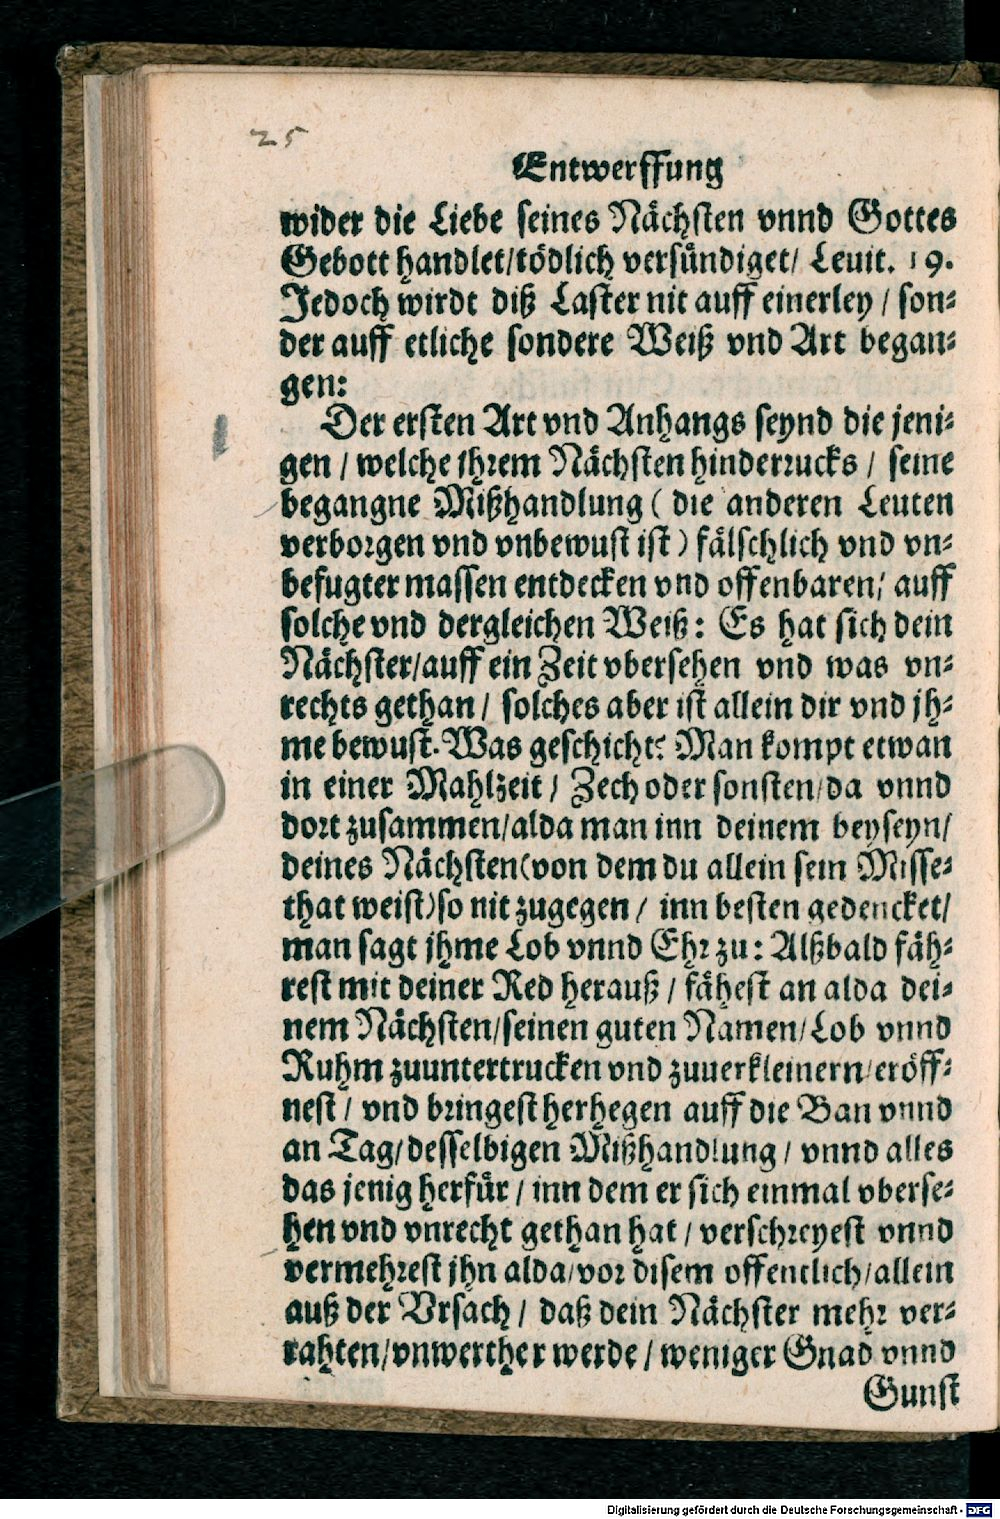 25
Entwerffung
wider die Liebe seines Nächsten vnnd Gottes
Gebott handlet/tödlich versündiget/ Leuit. 19.
Jedoch wirdt diß Laster nit auff einerley / son-
der auff etliche sondere Weiß vnd Art began-
gen:
Der ersten Art vnd Anhangs seynd die jeni-
gen / welche jhrem Nächsten hinderrucks / seine
begangne Mißhandlung ( die anderen Leuten
verborgen vnd vnbewust ist ) fälschlich vnd vn-
befugter massen entdecken vnd offenbaren/ auff
solche vnd dergleichen Weiß: Es hat sich dein
Nächster/auff ein Zeit vbersehen vnd was vn-
rechts gethan / solches aber ist allein dir vnd jh-
me bewust. Was geschicht? Man kompt etwan
in einer Mahlzeit / Zech oder sonsten/da vnnd
dort zusammen/alda man inn deinem beyseyn/
deines Nächsten(von dem du allein sein Misse-
that weist)so nit zugegen / inn besten gedencket/
man sagt jhme Lob vnnd Ehr zu: Alßbald fäh-
rest mit deiner Red herauß / fähest an alda dei-
nem Nächsten/seinen guten Namen/Lob vnnd
Ruhm zuuntertrucken vnd zuuerkleinern/eröff-
nest / vnd bringest herhegen auff die Ban vnnd
an Tag/desselbigen Mißhandlung / vnnd alles
das jenig herfür / inn dem er sich einmal vberse-
hen vnd vnrecht gethan hat / verschreyest vnnd
vermehrest jhn alda/vor disem offentlich/allein
auß der Vrsach / daß dein Nächster mehr ver-
rahten/vnwerther werde / weniger Gnad vnnd
Gunst
1
Digitalisierung gefördert durch die Deutsche Forschungsgemeinschaft - DFG